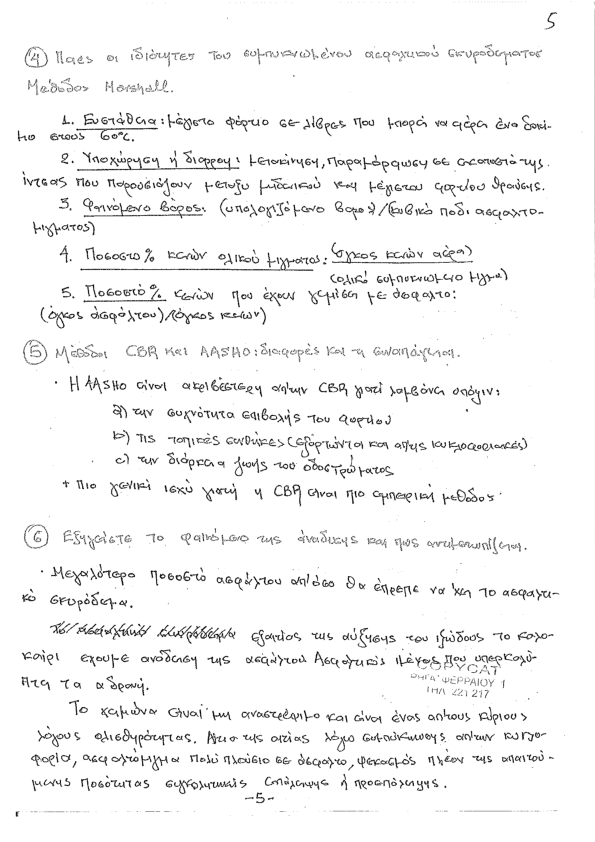 5
④ Ποιες οι ιδιότητες του συμπυκνωμένου ασφαλτικού σκυροδέματος
Μέθοδος Marshall.
1. Ευστάθεια: μέγιστο φορτίο σε λίβρες που μπορεί να φέρει ένα δοκί-
μιο στους 60°C.
2. Υποχώρηση ή διαρροή: μετακίνηση, παραμόρφωση σε εκατοστά της
ίντσας που παρουσιάζουν μεταξύ μηδενικού και μέγιστου φορτίου θραύσης.
3. Φαινόμενο βάρος: (υπολογιζόμενο βάρος)/(κυβικό πόδι ασφαλτο-
μίγματος)
4. Ποσοστο % κενών ολικού μίγματος: (όγκος κενών αέρα)
(ολικό συμπυκνωμένο μίγμα)
5. Ποσοστό % κενών που έχουν γεμίσει με άσφαλτο:
(όγκος ασφάλτου)/(όγκος κενών)
⑤ Μέθοδοι CBR και AASHO: διαφορές και τι συνεπάγεται.
· Η AASHO είναι ακριβέστερη απ'την CBR γιατί λαμβάνει υπόψιν:
a) την συχνότητα επιβολής του φορτίου
b) τις τοπικές συνθήκες (εξαρτώνται και απ'τις κυκλοφοριακές)
c) την διάρκεια ζωής του οδοστρώματος
+ πιο γενική ισχύ γιατί η CBR είναι πιο εμπειρική μέθοδος.
⑥ Εξηγείστε το φαινόμενο της ανάδυσης και πως αντιμετωπίζεται.
· Μεγαλύτερο ποσοστό ασφάλτου απ'όσο θα έπρεπε να 'χει το ασφαλτι-
κό σκυρόδεμα.
εξαιτίας της αύξησης του ιξώδους το καλο-
καίρι έχουμε ανάδυση της ασφάλτου. Ασφαλτικός που υπερκαλύ-
πτει τα αδρανή.
COPYCAT
ΡΗΓΑ ΦΕΡΡΑΙΟΥ 1
ΤΗΛ 221 217
Το χειμώνα είναι μη αναστρέψιμο και είναι ένας απ'τους κύριους
λόγους ολισθηρότητας. λόγω συμπύκνωσης απ'την κυκλο-
φορία, ασφαλτόμιγμα πολύ πλούσιο σε άσφαλτο, ψεκασμός πλέον της απαιτού-
μενης ποσότητας συγκολλητικής επάλειψης ή προεπάλειψης.
-5-